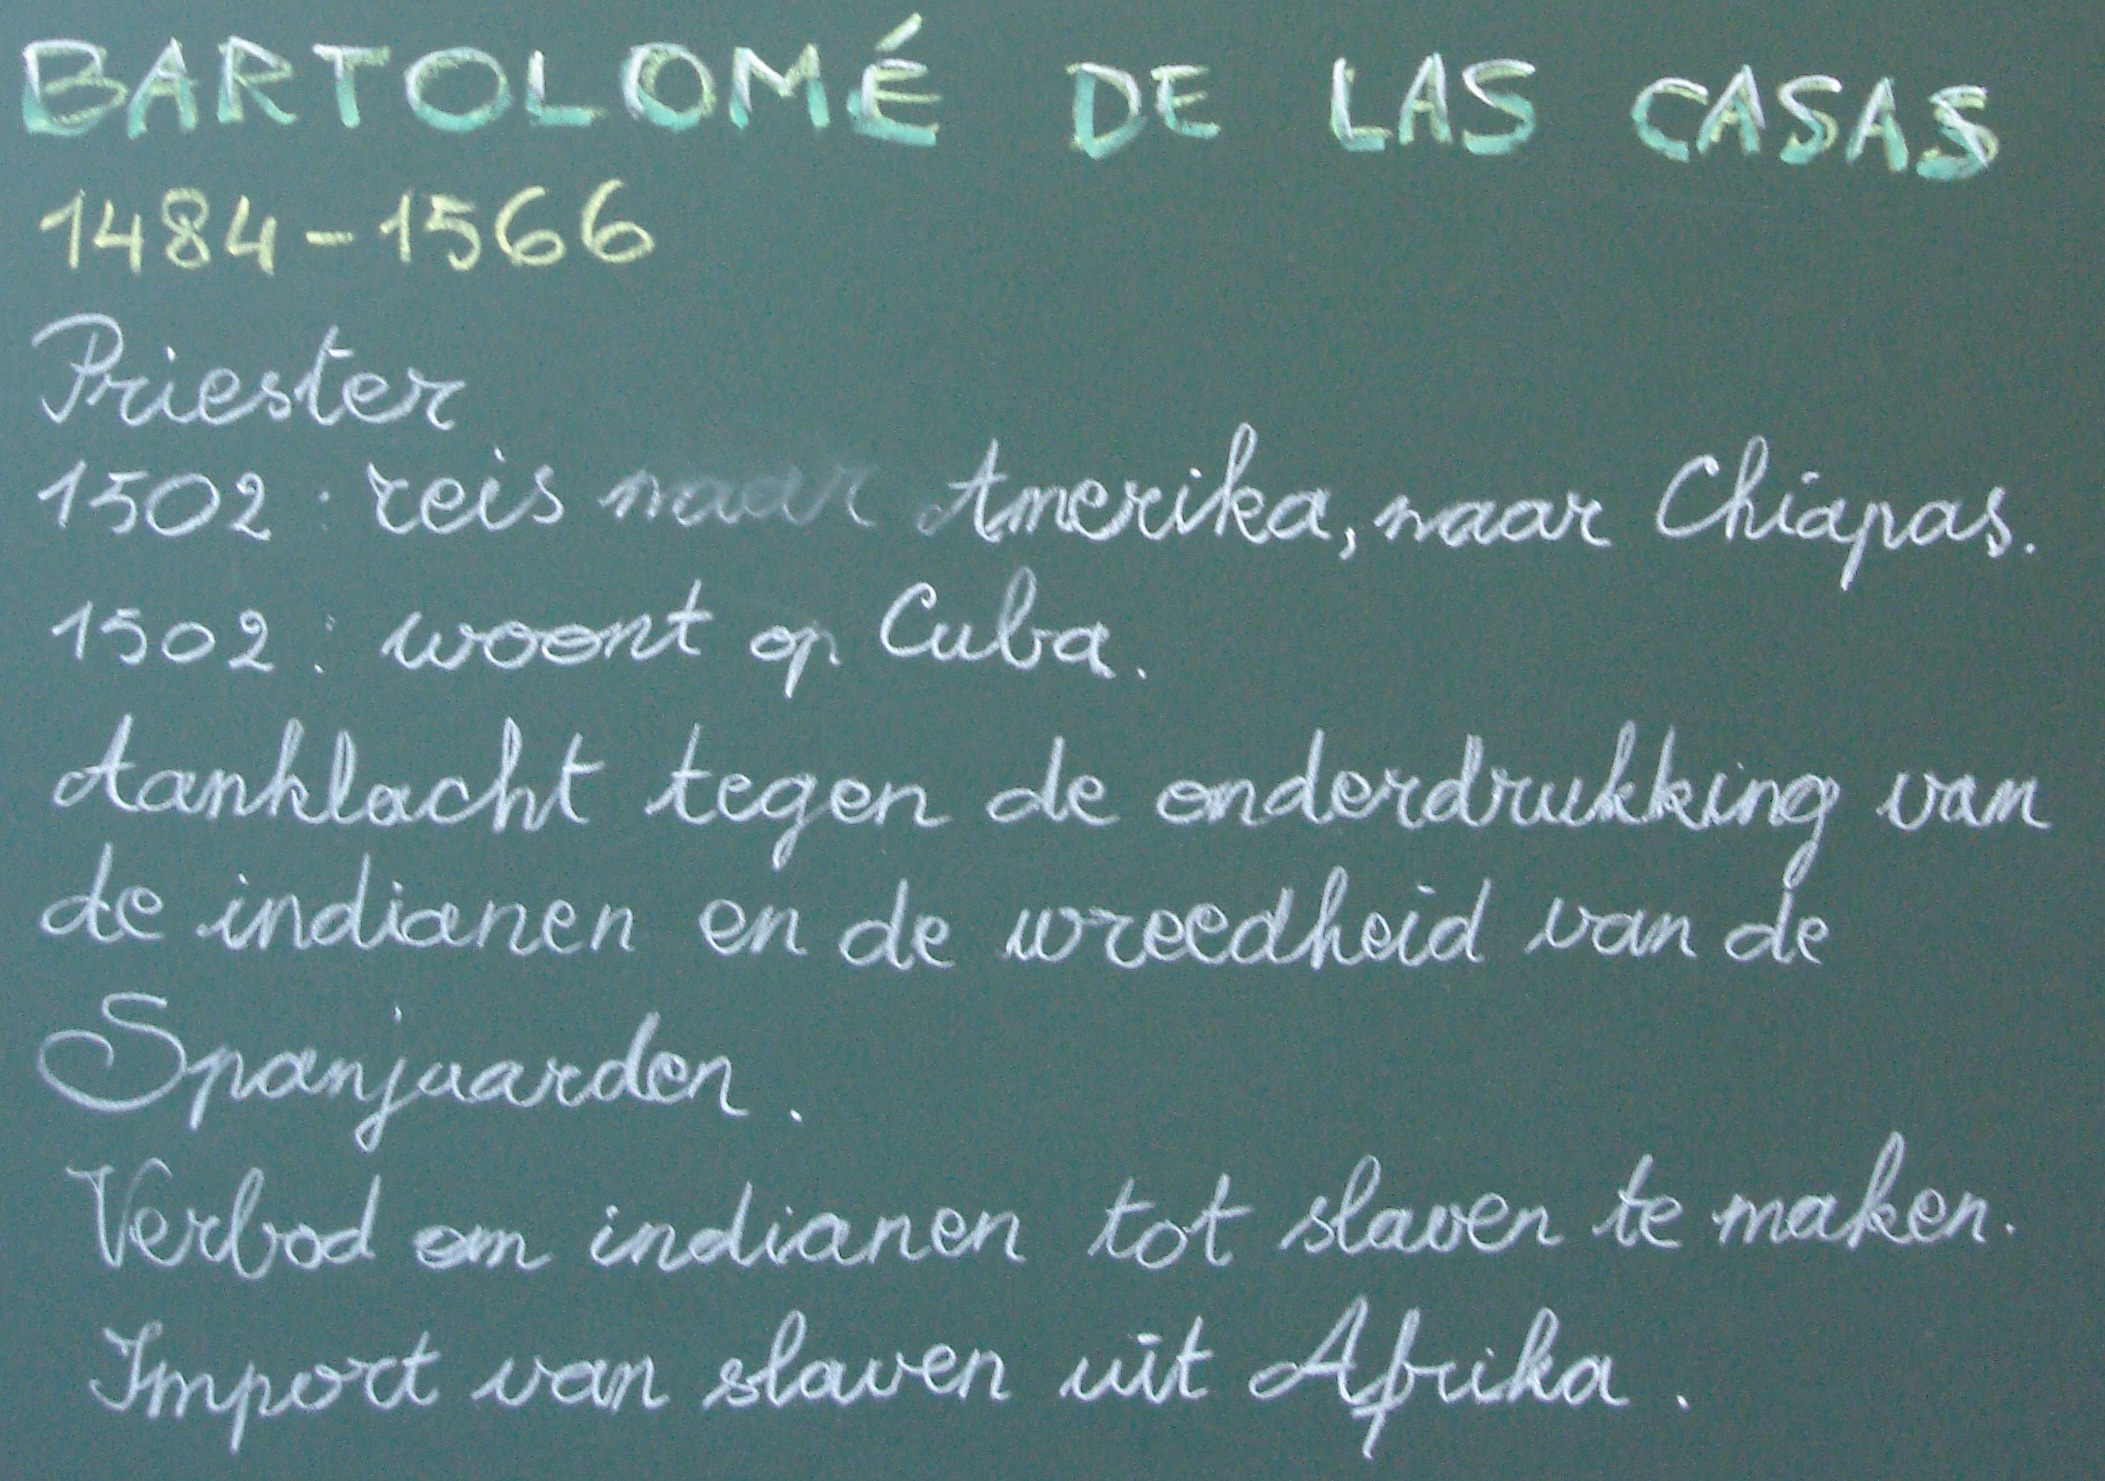 BARTOLOMÉ DE LAS CASAS
1484-1566
Priester
1502: reis naar Amerika, naar Chiapas.
1502: woont op Cuba.
Aanklacht tegen de onderdrukking van
de indianen en de wreedheid van de
Spanjaarden.
Verbod om indianen tot slaven te maken.
Import van slaven uit Afrika.